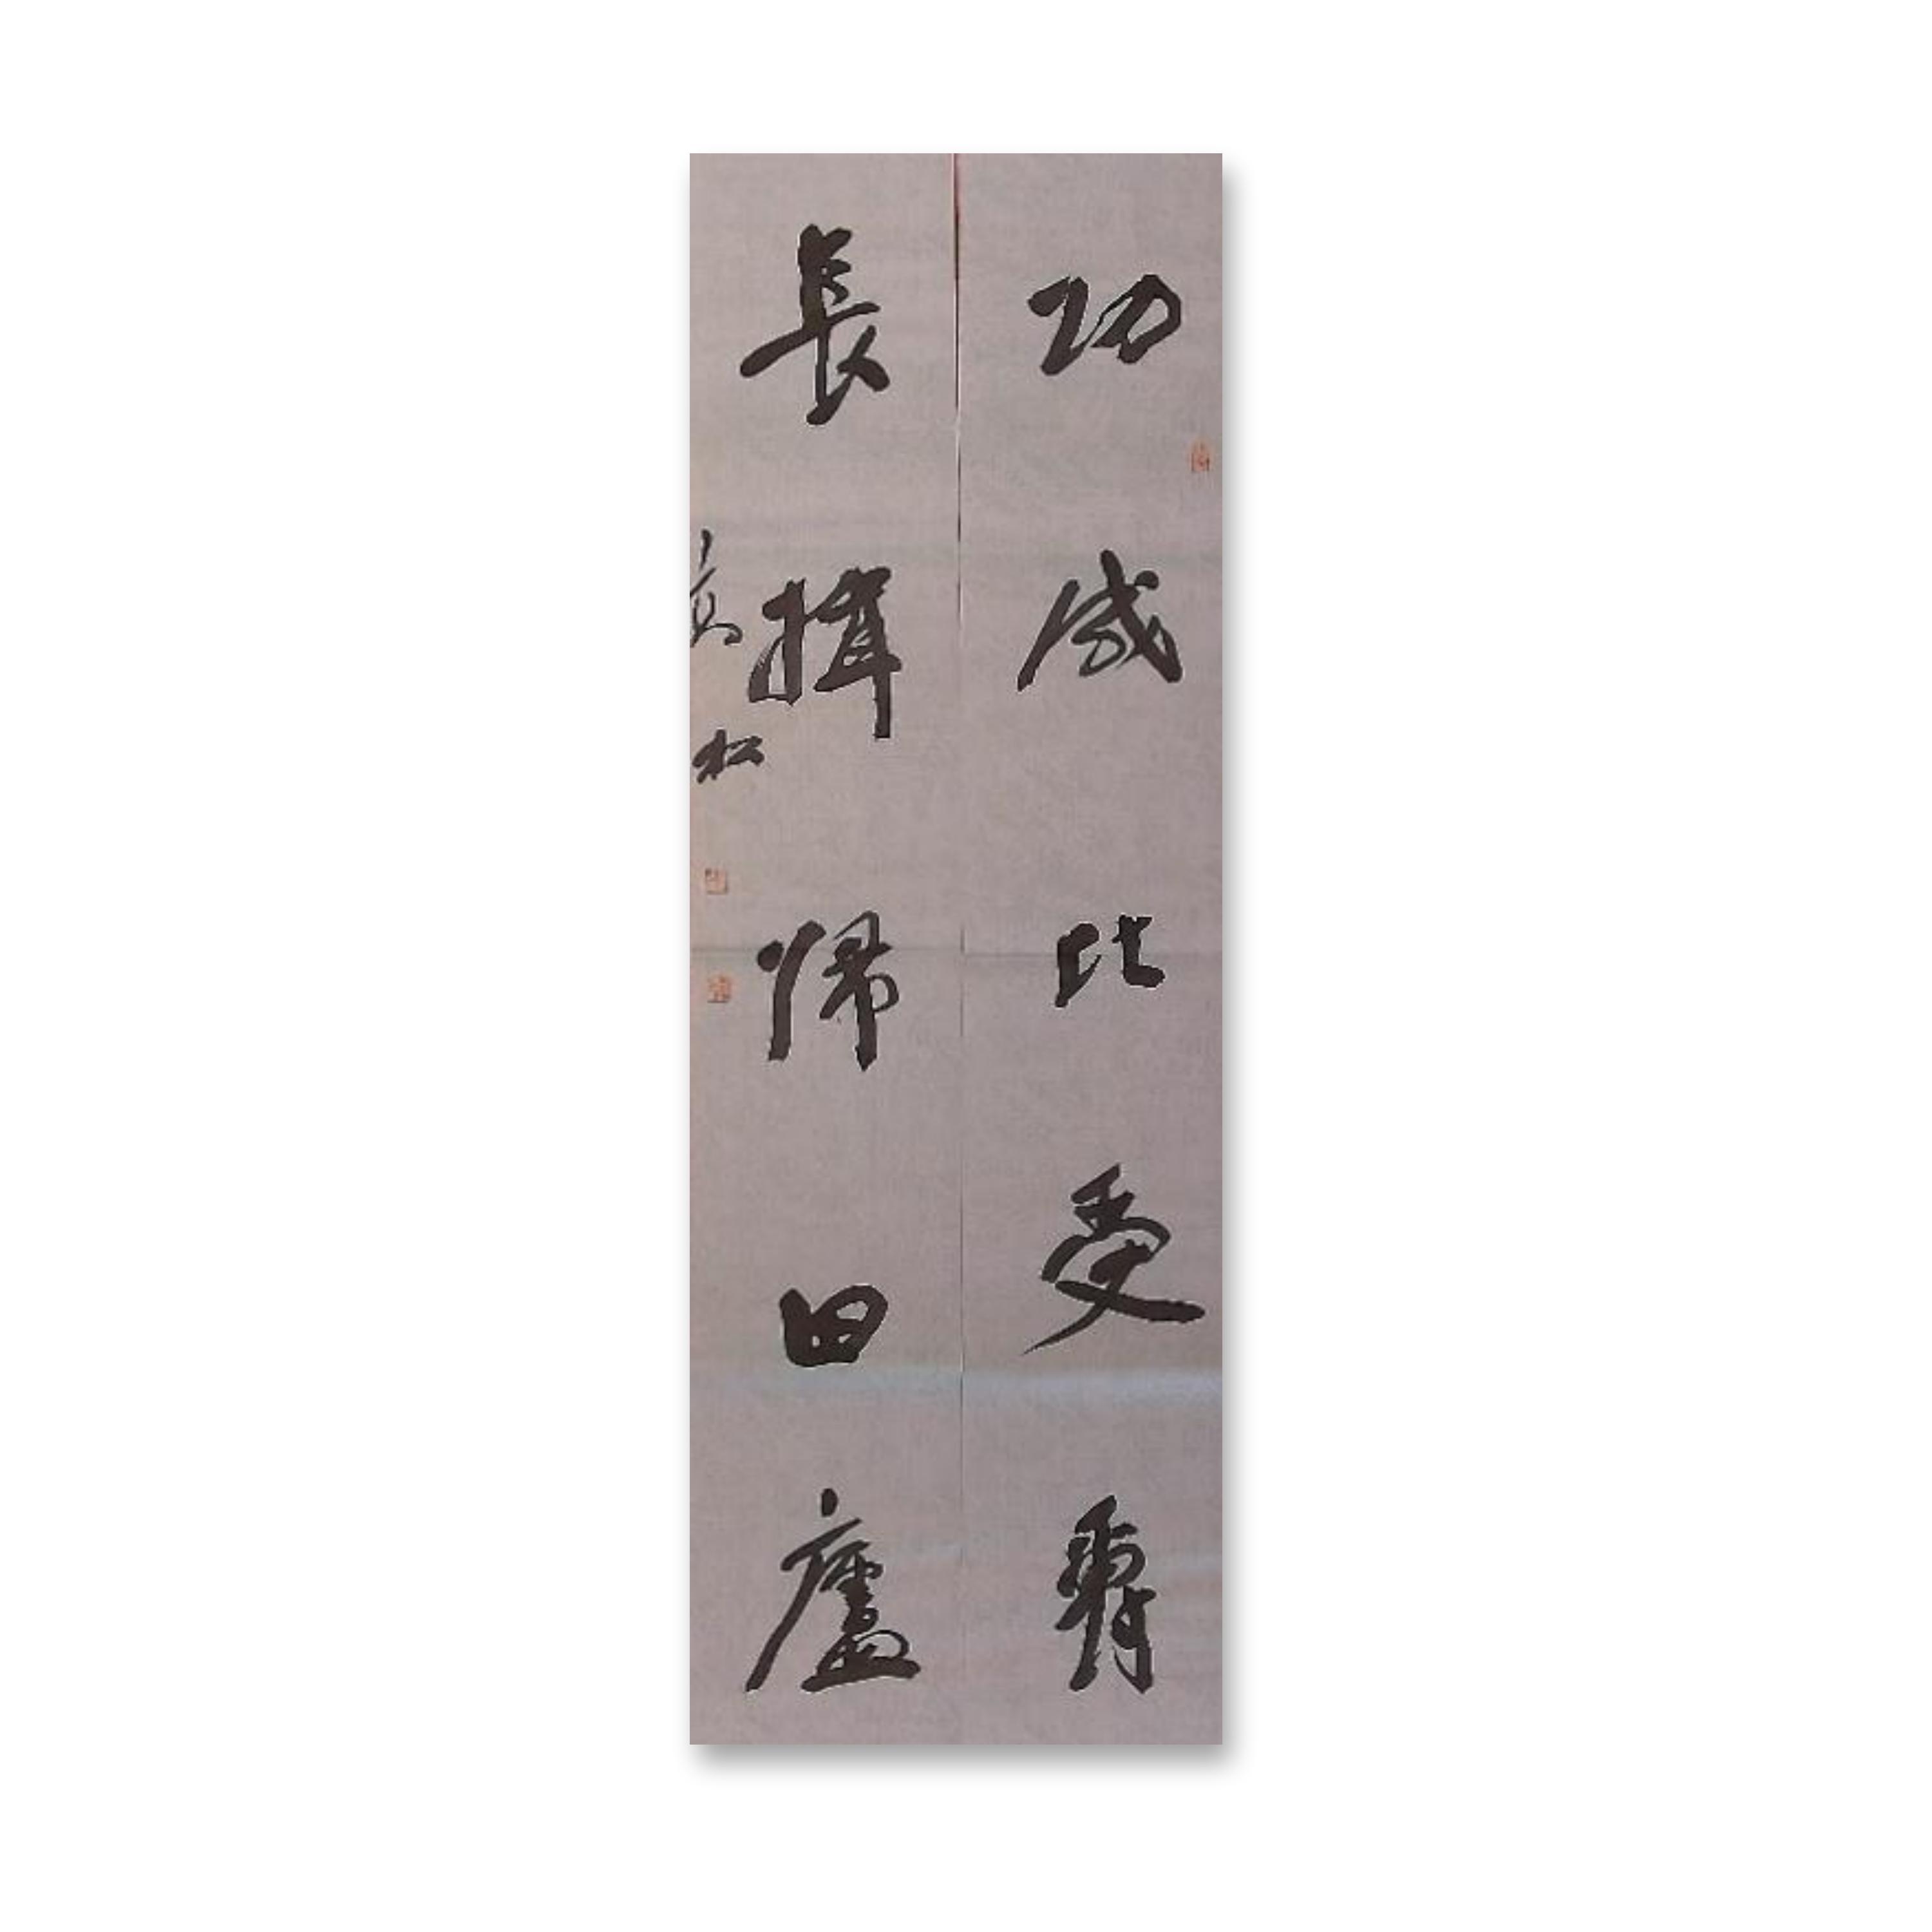 功成比受爵
長揖歸田廬
松